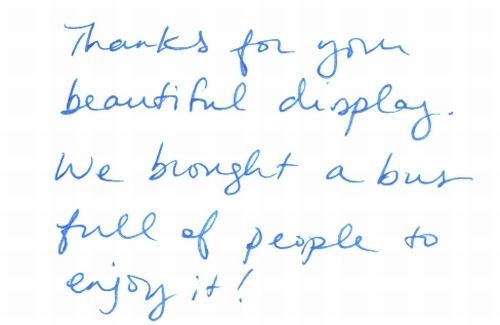 Thanks for your
beautiful display.
We brought a bus
full of people to
enjoy it!